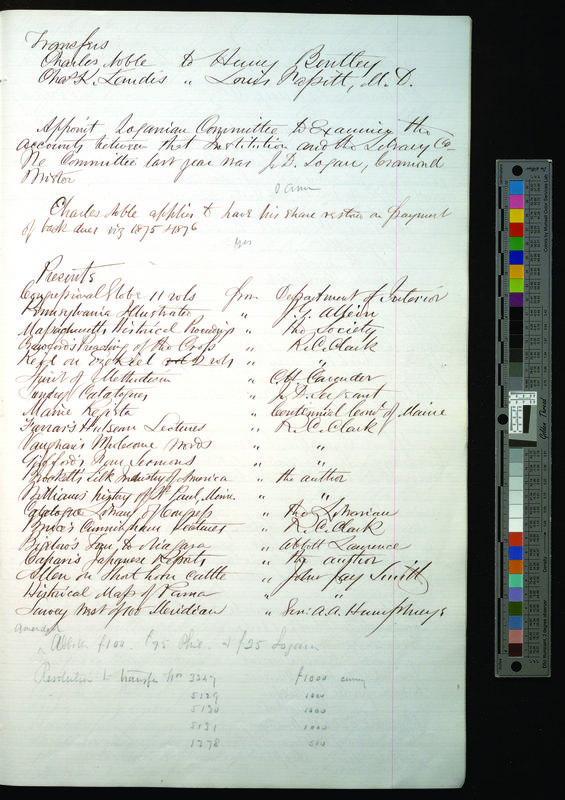 Transfers
Charles Noble to Henry Bentley
Chas K. Landis " Louis Rapitt, M. D.
Appoint Loganian Committee to Examine the
accounts between that Institution and the Library Co
The Committee last year was J. D. Logan, Cramond
same
Charles Noble applies to have his share restored on payment
of back dues viz 1875 & 1876
yes
Presents
Congressional Globe 11 vols from Department of Interior
Pennsylvania Illustrated "
Massachusetts Historical Proceedings " The Society
Crawford's Preaching of the Cross " R. C. Clark
Keil on Ezekiel 2 vols " "
Spirit of " C. H. Cavender
Sundry Catalogues " J. D. Sergeant
Maine Register " Centennial Comr. of Maine
Farrar's Hulsean Lectures " R. C. Clark
Vaughan's Wholesome Words " "
Gifford's Sermons " "
Brockett's Silk Industry of America " the author
Williams history of St Paul, Minn. " "
Catalogue Library of Congress " The Librarian
Brice's Cunningham Lectures " R. C. Clark
Bigelow's Tour to Niagara " Abbott Lawrence
Capron's Japanese Reports " the author
Allen on Short horn cattle " John Jay Smith
Historical Map of " "
Survey West of 100 Meridian " Gen: A. A. Humphreys
Abbott £100. £75 Phil. & £25 Logan
Resolution to transfer Nos 3247 £1000
5129 1000
5130 1000
5131 1000
1778 500